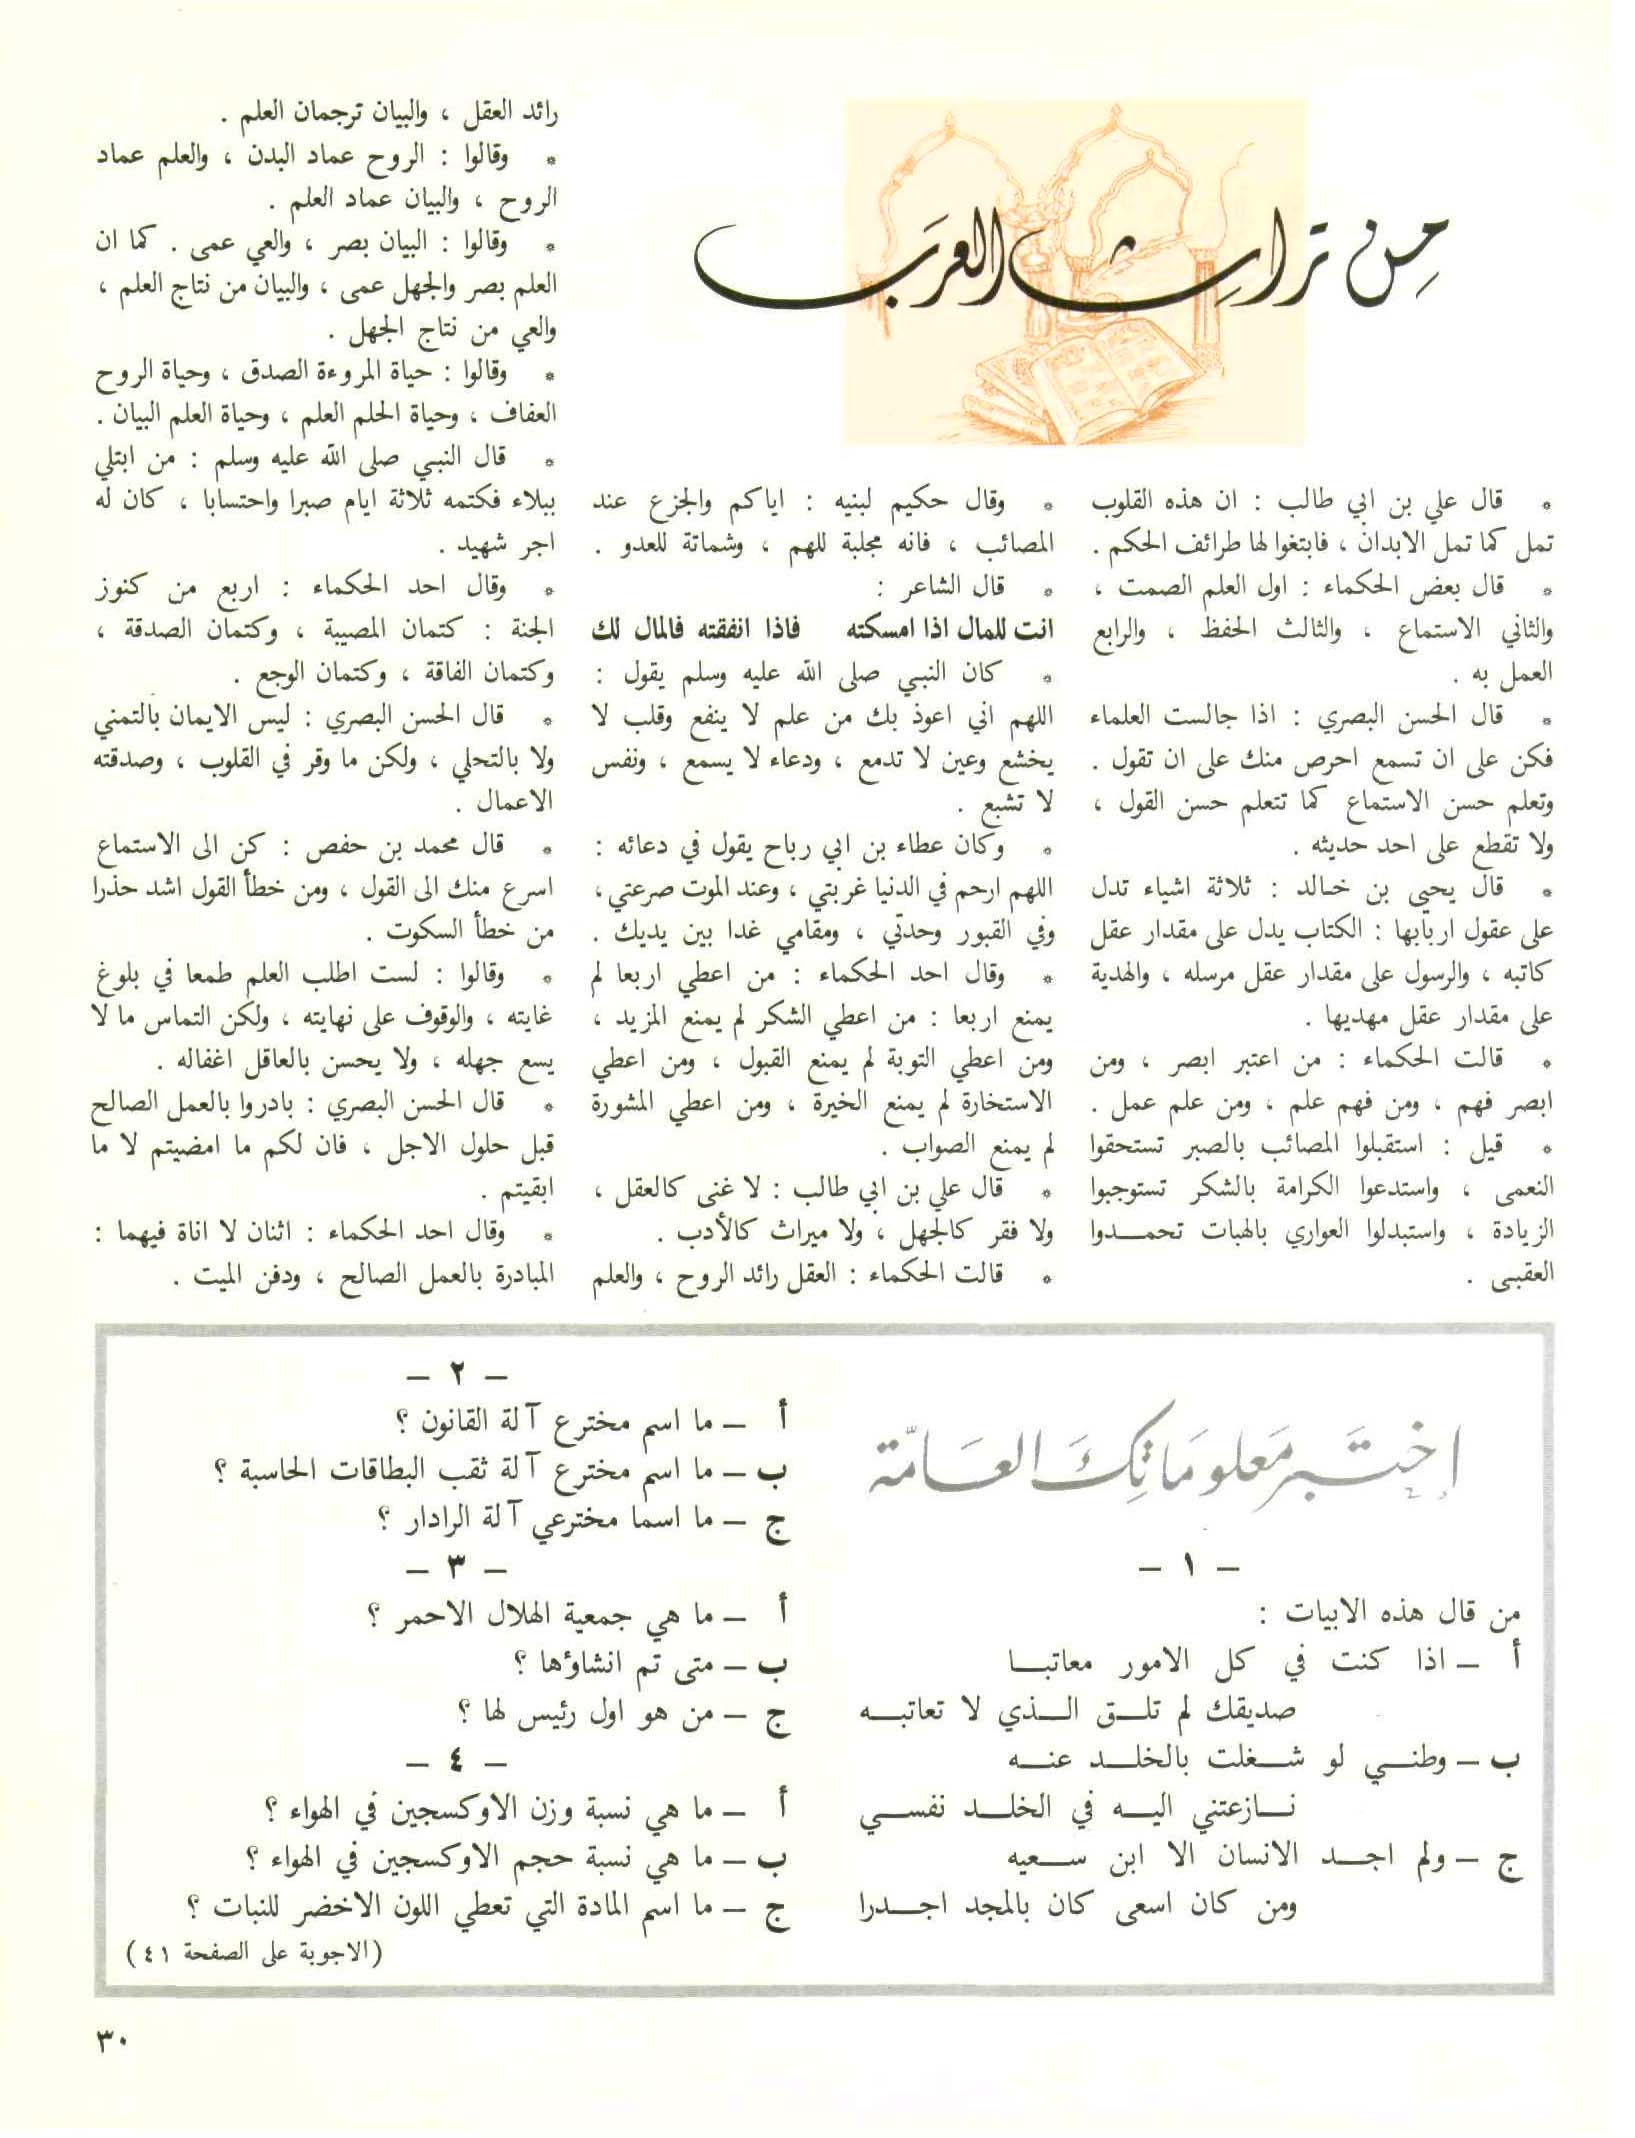 من تراث العرب
* قال علي بن ابي طالب : ان هذه القلوب
تمل كما تمل الابدان ، فابتغوا لها طرائف الحكم .
* قال بعض الحكماء : اول العلم الصمت ،
والثاني الاستماع ، والثالث الحفظ ، والرابع
العمل به .
* قال الحسن البصري : اذا جالست العلماء
فكن على ان تسمع احرص منك على ان تقول .
وتعلم حسن الاستماع كما تتعلم حسن القول ،
ولا تقطع على احد حديثه .
* قال يحيى بن خالد : ثلاثة اشياء تدل
على عقول اربابها : الكتاب يدل على مقدار عقل
كاتبه ، والرسول على مقدار عقل مرسله ، والهدية
على مقدار عقل مهديها .
* قالت الحكماء : من اعتبر ابصر ، ومن
ابصر فهم ، ومن فهم علم ، ومن علم عمل .
* قيل : استقبلوا المصائب بالصبر تستحقوا
النعمى ، واستدعوا الكرامة بالشكر تستوجبوا
الزيادة ، واستبدلوا العواري بالهبات تحمدوا
العقبى .
* وقال حكيم لبنيه : اياكم والجزع عند
المصائب ، فانه مجلبة للهم ، وشماتة للعدو .
* قال الشاعر :
انت للمال اذا امسكته فاذا انفقته فالمال لك
* كان النبي صلى الله عليه وسلم يقول :
اللهم اني اعوذ بك من علم لا ينفع وقلب لا
يخشع وعين لا تدمع ، ودعاء لا يسمع ، ونفس
لا تشبع .
* وكان عطاء بن ابي رباح يقول في دعائه :
اللهم ارحم في الدنيا غربتي ، وعند الموت صرعتي ،
وفي القبور وحدتي ، ومقامي غدا بين يديك .
* وقال احد الحكماء : من اعطي اربعا لم
يمنع اربعا : من اعطي الشكر لم يمنع المزيد ،
ومن اعطي التوبة لم يمنع القبول ، ومن اعطي
الاستخارة لم يمنع الخيرة ، ومن اعطي المشورة
لم يمنع الصواب .
* قال علي بن ابي طالب : لا غنى كالعقل ،
ولا فقر كالجهل ، ولا ميراث كالأدب .
* قالت الحكماء : العقل رائد الروح ، والعلم
رائد العقل ، والبيان ترجمان العلم .
* وقالوا : الروح عماد البدن ، والعلم عماد
الروح ، والبيان عماد العلم .
* وقالوا : البيان بصر ، والعي عمى . كما ان
العلم بصر والجهل عمى ، والبيان من نتاج العلم ،
والعي من نتاج الجهل .
* وقالوا : حياة المروءة الصدق ، وحياة الروح
العفاف ، وحياة الحلم العلم ، وحياة العلم البيان .
* قال النبي صلى الله عليه وسلم : من ابتلي
ببلاء فكتمه ثلاثة ايام صبرا واحتسابا ، كان له
اجر شهيد .
* وقال احد الحكماء : اربع من كنوز
الجنة : كتمان المصيبة ، وكتمان الصدقة ،
وكتمان الفاقة ، وكتمان الوجع .
* قال الحسن البصري : ليس الايمان بالتمني
ولا بالتحلي ، ولكن ما وقر في القلوب ، وصدقته
الاعمال .
* قال محمد بن حفص : كن الى الاستماع
اسرع منك الى القول ، ومن خطأ القول اشد حذرا
من خطأ السكوت .
* وقالوا : لست اطلب العلم طمعا في بلوغ
غايته ، والوقوف على نهايته ، ولكن التماس ما لا
يسع جهله ، ولا يحسن بالعاقل اغفاله .
* قال الحسن البصري : بادروا بالعمل الصالح
قبل حلول الاجل ، فان لكم ما امضيتم لا ما
ابقيتم .
* وقال احد الحكماء : اثنان لا اناة فيهما :
المبادرة بالعمل الصالح ، ودفن الميت .
إختَبر مَعلومَاتِكَ العَامّة
– ١ –
من قال هذه الابيات :
أ – اذا كنت في كل الامور معاتبا
صديقك لم تلق الذي لا تعاتبه
ب – وطني لو شغلت بالخلد عنه
نازعتني اليه في الخلد نفسي
ج – ولم اجد الانسان الا ابن سعيه
ومن كان اسعى كان بالمجد اجدرا
– ٢ –
أ – ما اسم مخترع آلة القانون ؟
ب – ما اسم مخترع آلة ثقب البطاقات الحاسبة ؟
ج – ما اسما مخترعي آلة الرادار ؟
– ٣ –
أ – ما هي جمعية الهلال الاحمر ؟
ب – متى تم انشاؤها ؟
ج – من هو اول رئيس لها ؟
– ٤ –
أ – ما هي نسبة وزن الاوكسجين في الهواء ؟
ب – ما هي نسبة حجم الاوكسجين في الهواء ؟
ج – ما اسم المادة التي تعطي اللون الاخضر للنبات ؟
(الاجوبة على الصفحة ٤١)
٣٠